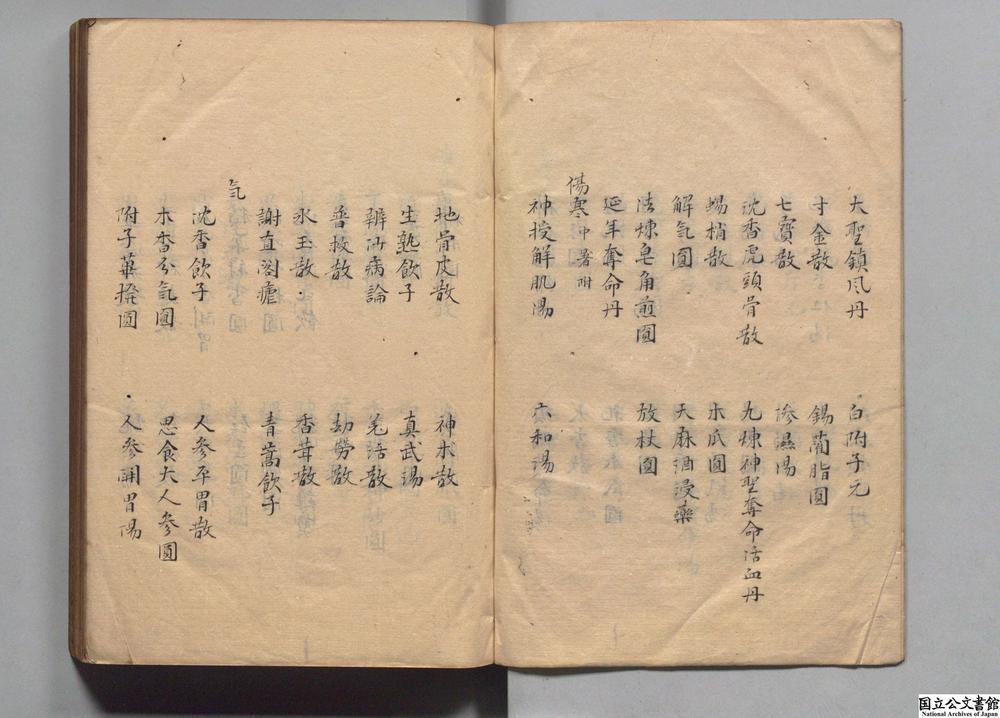 大聖鎮风丹 白附子元
寸金散 錫藺脂圓
七寳散 滲濕湯
沈香虎頭骨散 九煉神聖奪命活血丹
蝎梢散 木瓜圓
解氣圓 天麻酒浸藥
法煉皂角煎圓 放杖圓
延年奪命丹
傷寒 中暑附
神授解肌湯 六和湯
地骨皮散 神术散
生熟飲子 真武湯
辨沙病論 羌活散
普救散 劫勞散
氷玉散 香茸散
謝直閣瘧 青蒿飲子
気
沈香飲子 人参平胃散
木香分気圓 思食大人参圓
附子蓽撥圓 人参開胃湯
国立公文書館
National Archives of Japan